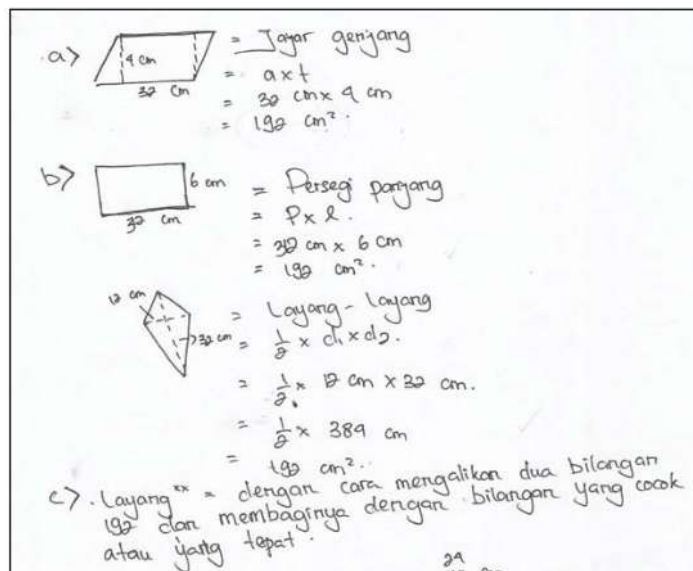 a> 4 cm = Jajar genjang
32 cm = a x t
= 32 cm x 4 cm
= 192 cm².
b> 6 cm = Persegi panjang
32 cm = P x l.
= 32 cm x 6 cm
= 192 cm².
12 cm = Layang-layang
32 cm = 1/2 x d1 x d2.
= 1/2 x 12 cm x 32 cm.
= 1/2 x 384 cm
= 192 cm².
c> Layang" = dengan cara mengalikan dua bilangan
192 dan membaginya dengan bilangan yang cocok
atau yang tepat.
24